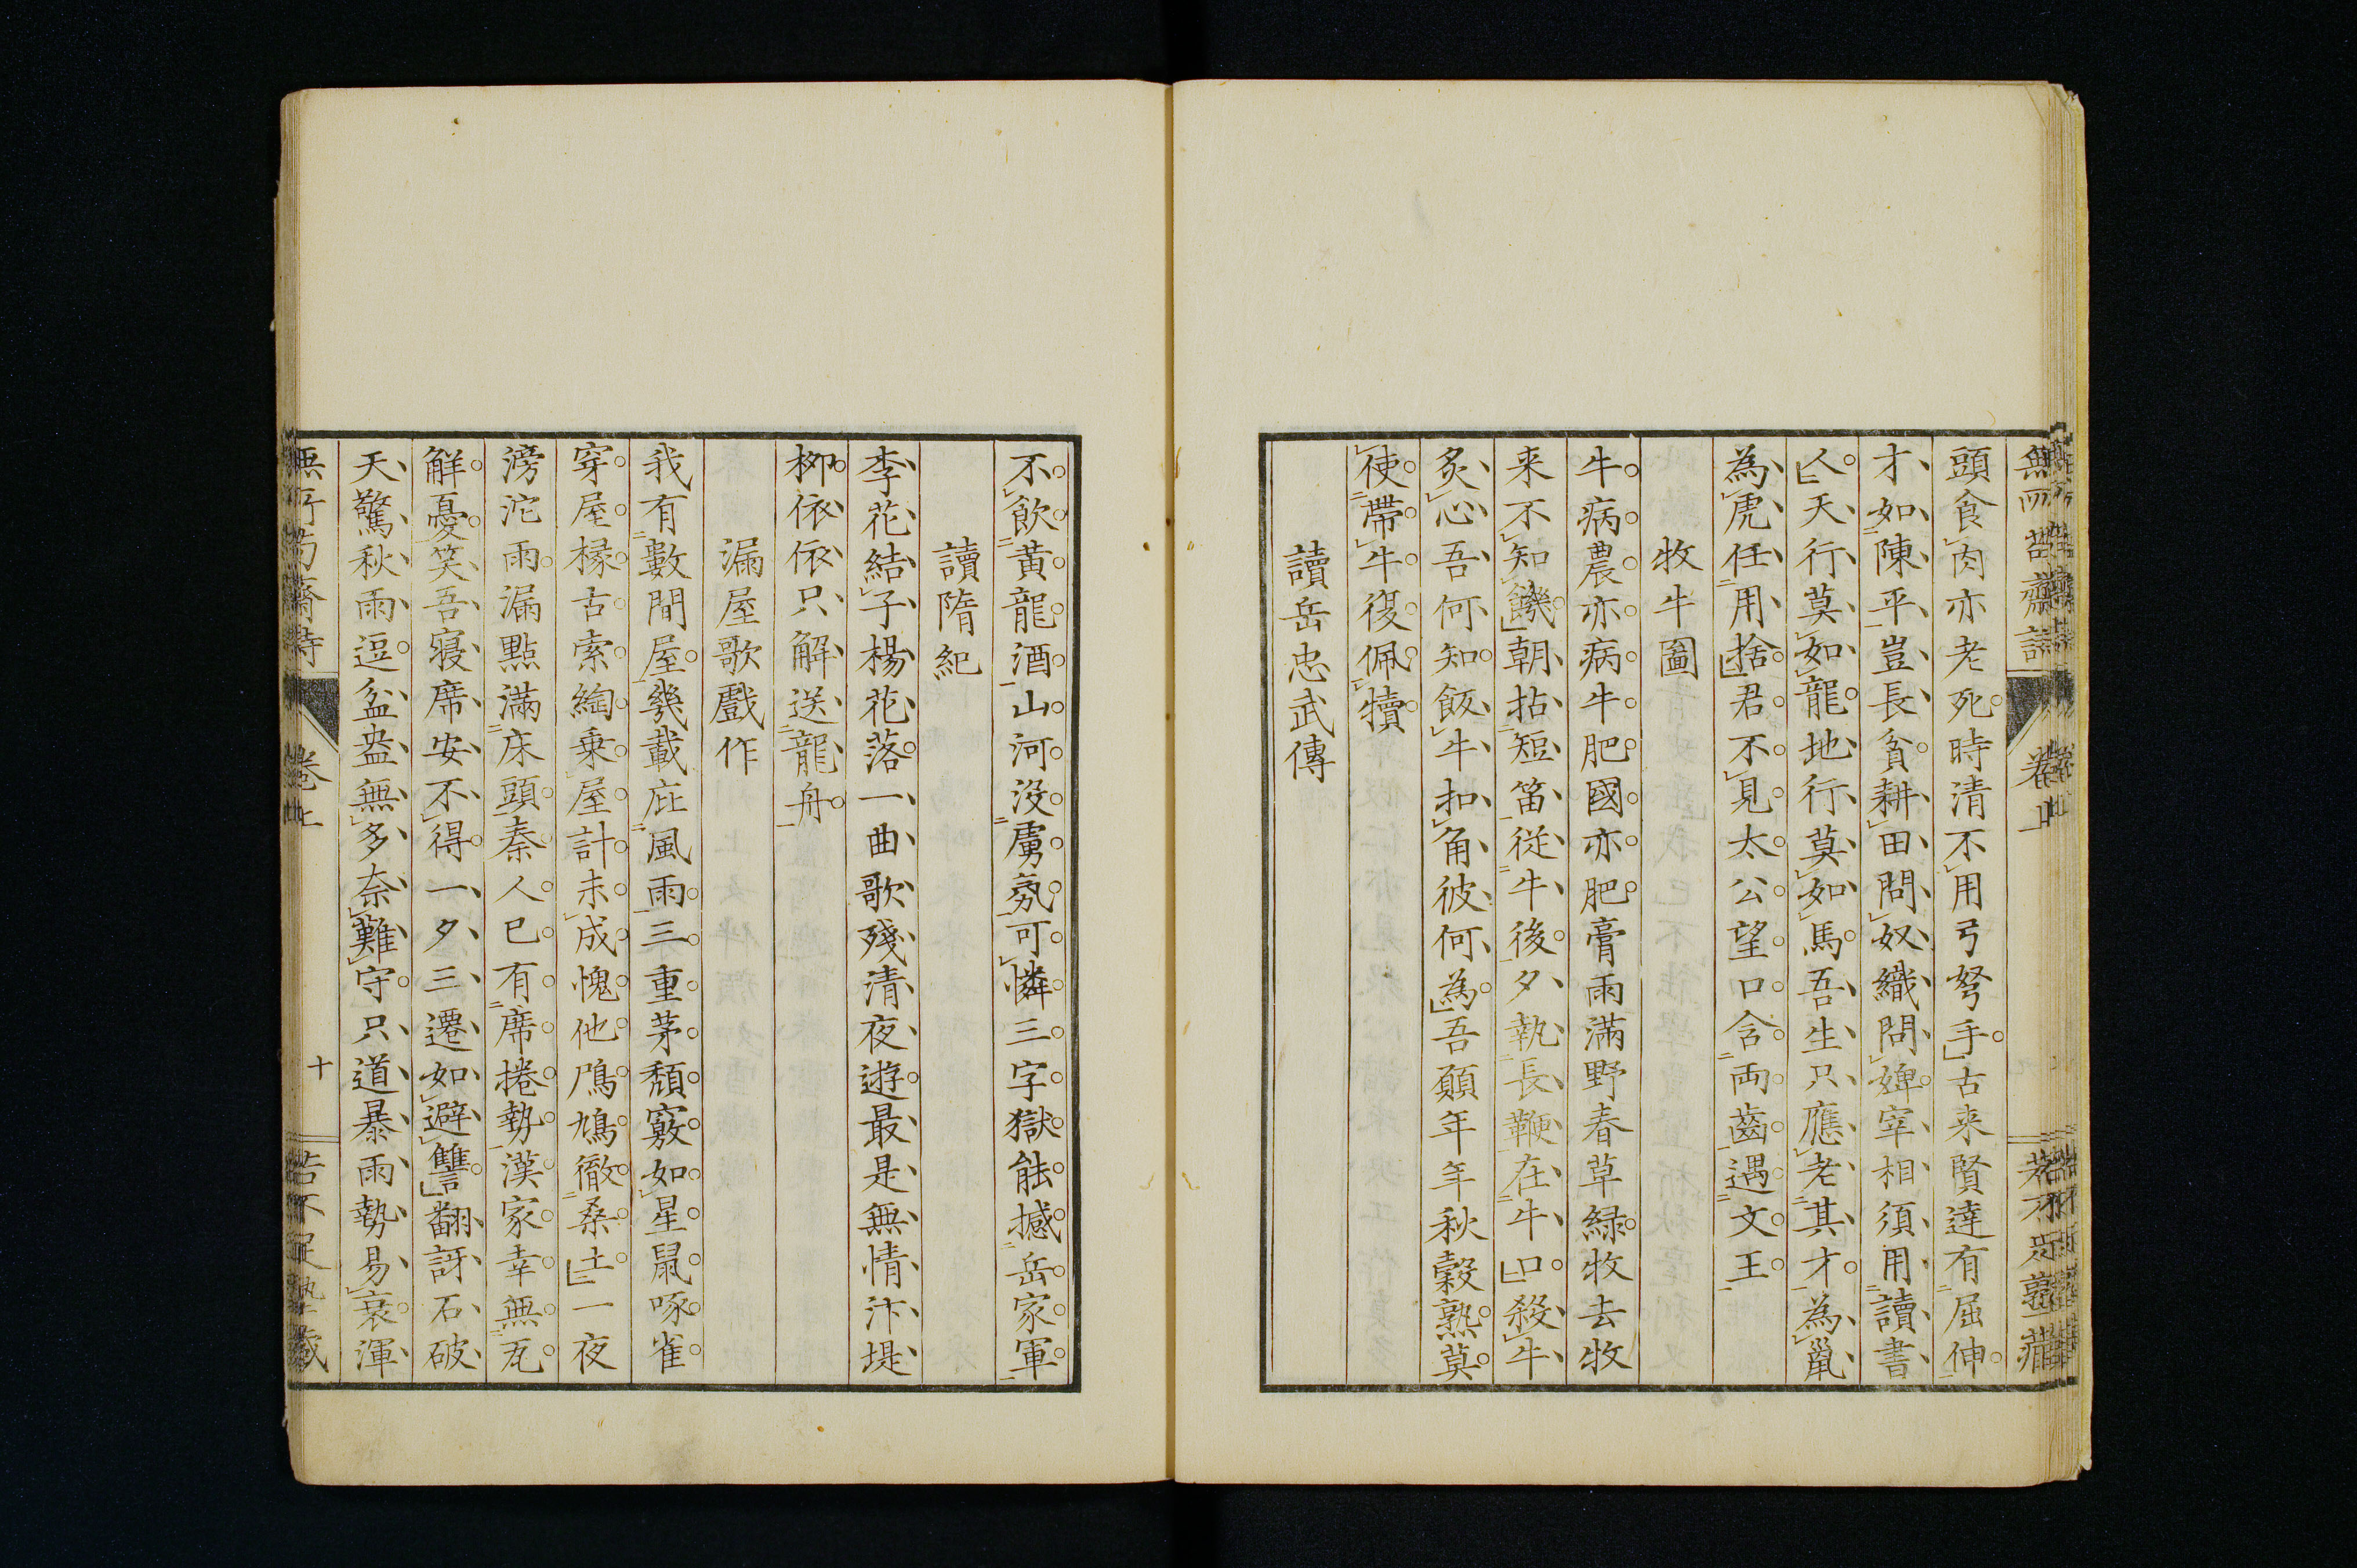 無所苟齋詩 卷上 若不足塾藏
頭食肉亦老死時清不用弓弩手古来賢達有屈伸
才如陳平豈長貧耕田問奴織問婢宰相須用讀書
人天行莫如龍地行莫如馬吾生只應老其才為鼠
為虎任用捨君不見太公望口含両齒遇文王
牧牛圖
牛病農亦病牛肥國亦肥膏雨滿野春草緑牧去牧
来不知饑朝拈短笛従牛後夕執長鞭在牛口殺牛
炙心吾何知飯牛扣角彼何為吾願年年秋穀熟莫
使帶牛復佩犢
讀岳忠武傳
不飲黄龍酒山河没虜氛可憐三字獄能撼岳家軍
讀隋紀
李花結子楊花落一曲歌殘清夜遊最是無情汴堤
栁依依只解送龍舟
漏屋歌戲作
我有數間屋幾載庇風雨三重茅頽竅如星鼠啄雀
穿屋椽古索綯乗屋計未成愧他鳲鳩徹桑土一夜
滂沱雨漏點滿床頭秦人已有席捲勢漢家幸無瓦
解憂笑吾寝席安不得一夕三遷如避讐翻訝石破
天驚秋雨逗盆盎無多奈難守只道暴雨勢易衰渾
無所苟齋詩 卷上 十 若不足塾藏